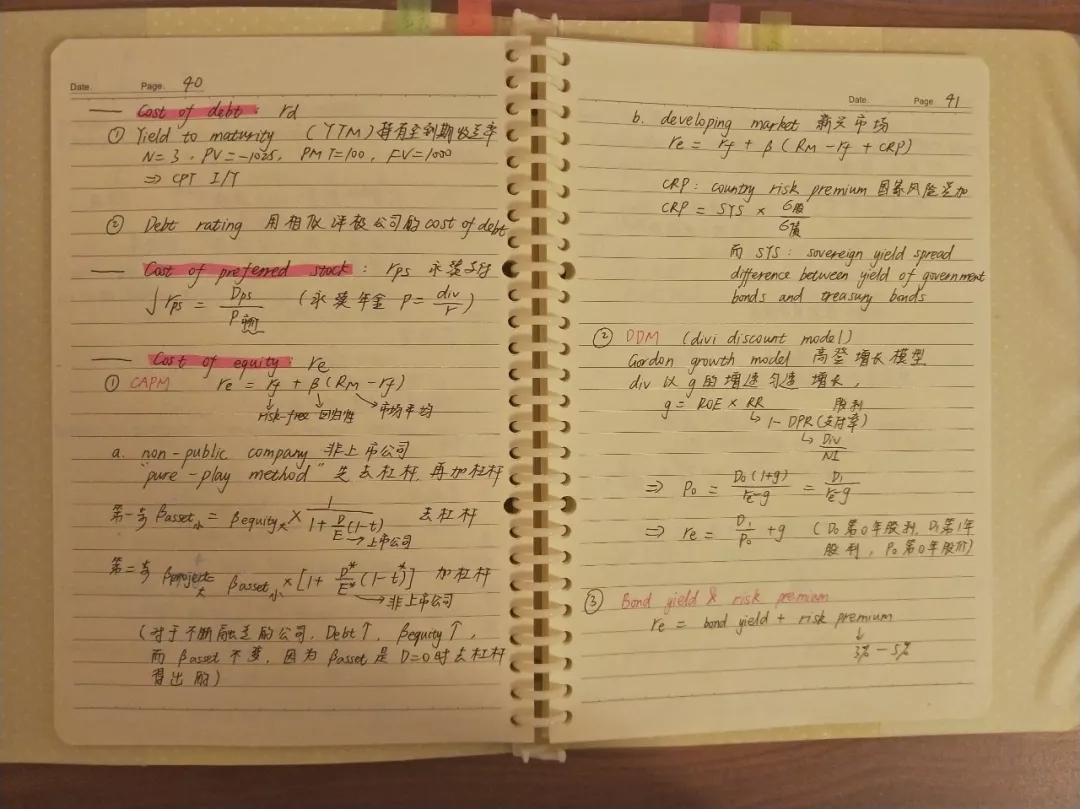 Date. Page. 40
— Cost of debt : rd
① Yield to maturity (YTM) 持有至到期收益率
N=3, PV=-1025, PMT=100, FV=1000
⇒ CPT I/Y
② Debt rating 用相似评级公司的cost of debt
— Cost of preferred stock : rps 永续
∫ rps = Dps / P (永续年金 P = div / r)
— Cost of equity : re
① CAPM re = rf + β (RM - rf)
risk-free 市场平均
a. non-public company 非上市公司
"pure-play method" 先去杠杆, 再加杠杆
第一步 βasset小 = βequity大 × 1 / (1 + D/E (1-t)) 去杠杆
上市公司
第二步 βproject大 = βasset小 × [1 + D*/E* (1-t*)] 加杠杆
非上市公司
(对于不断融资的公司, Debt↑, βequity↑,
而βasset不变, 因为βasset是D=0时去杠杆
得出的)
Date. Page 41
b. developing market 新兴市场
re = rf + β (RM - rf + CRP)
CRP : country risk premium 国家风险溢价
CRP = SYS × σ股 / σ债
而 SYS : sovereign yield spread
difference between yield of government
bonds and treasury bonds
② DDM (divi discount model)
Gordon growth model 高登增长模型
div 以g的增速匀速增长,
g = ROE × RR 股利
↳ 1-DPR(支付率)
↳ Div / NI
⇒ P0 = D0 (1+g) / re-g = D1 / re-g
⇒ re = D1 / P0 + g (D0 第0年股利, D1第1年
股利, P0 第0年股价)
③ Bond yield & risk premium
re = bond yield + risk premium
3% - 5%